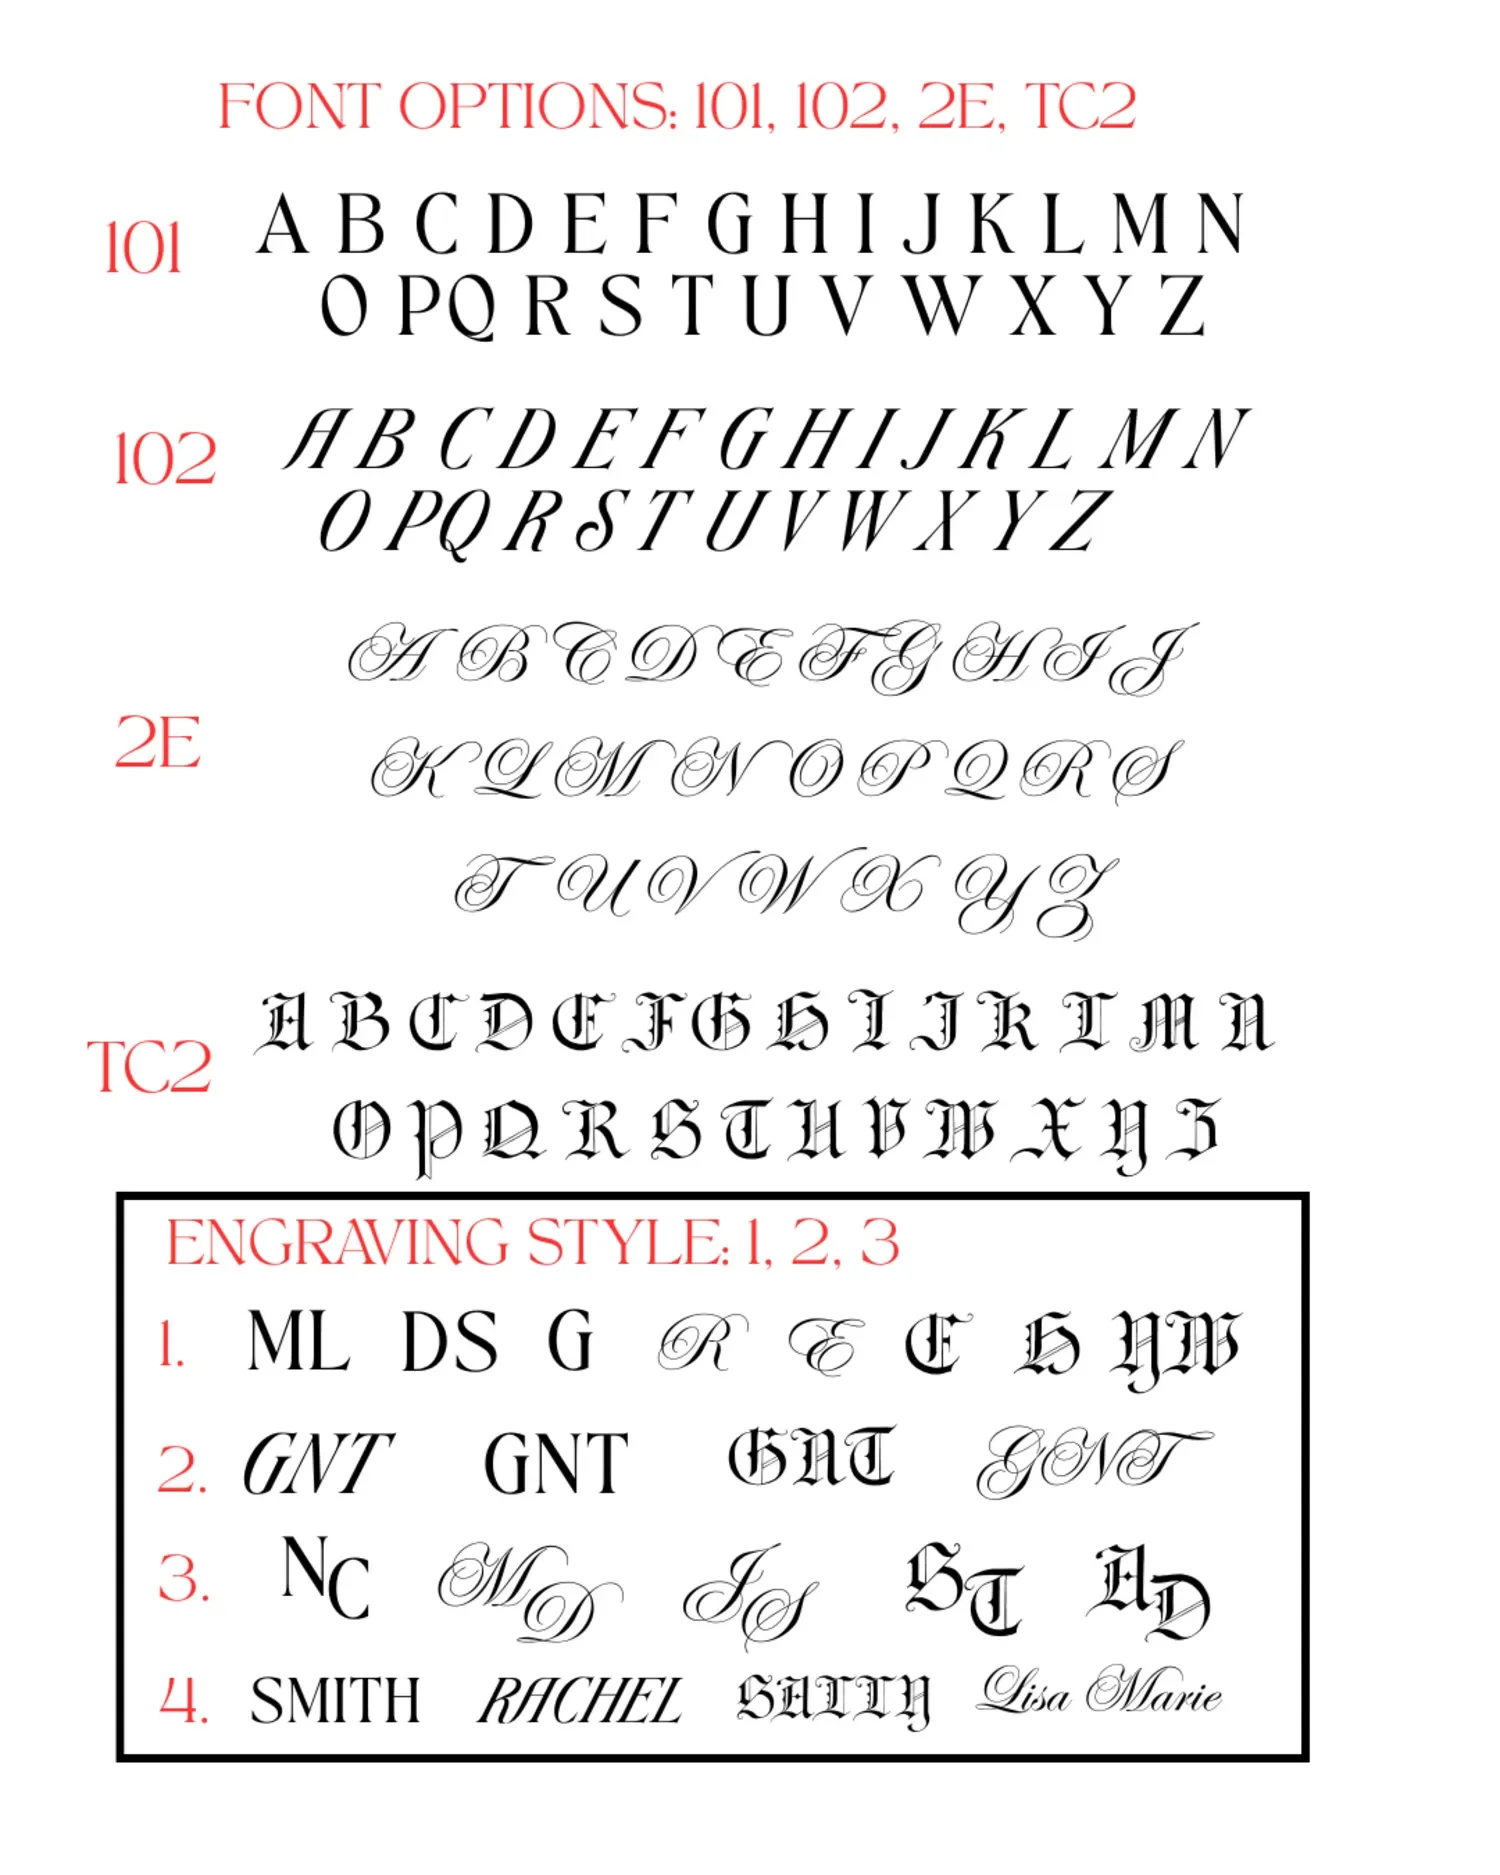 FONT OPTIONS: 101, 102, 2E, TC2
101 A B C D E F G H I J K L M N
O P Q R S T U V W X Y Z
102 A B C D E F G H I J K L M N
O P Q R S T U V W X Y Z
A B C D E F G H I J
2E K L M N O P Q R S
T U V W X Y Z
TC2 A B C D E F G H I J K L M N
O P Q R S T U V W X Y Z
ENGRAVING STYLE: 1, 2, 3
1. ML DS G R E E H YW
2. GNT GNT GNT GNT
3. NC MD JS ST AD
4. SMITH RACHEL SALLY Lisa Marie